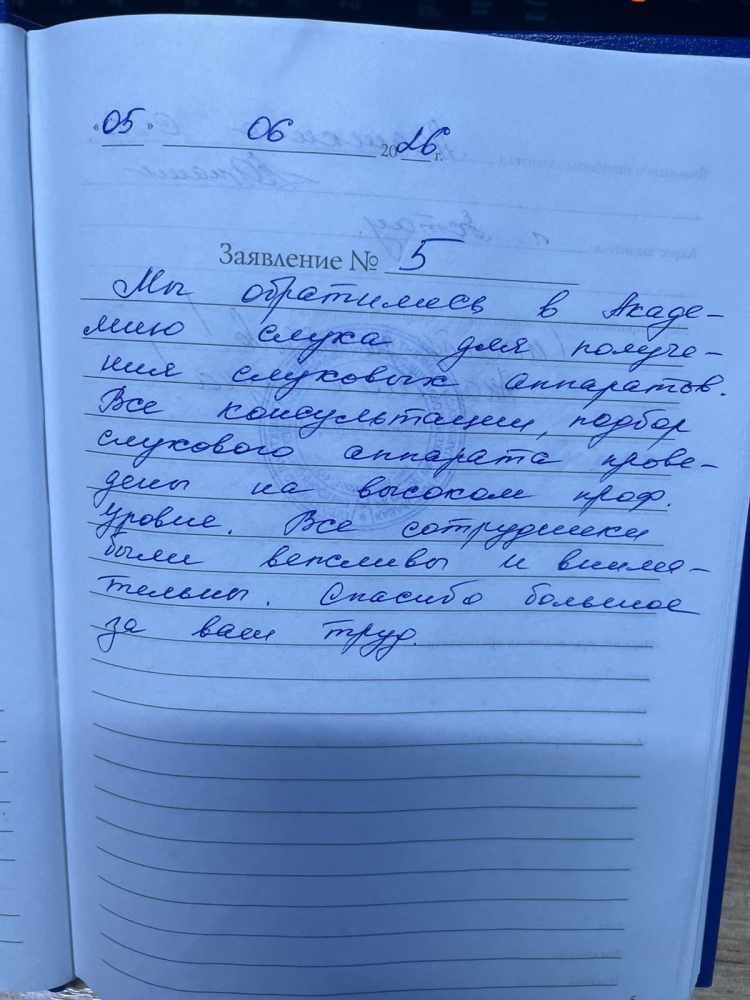 «05» 06 2026 г.
Заявление № 5
Мы обратились в Акаде-
мию слуха для получе-
ния слуховых аппаратов.
Все консультации, подбор
слухового аппарата прове-
дены на высоком проф.
уровне. Все сотрудники
были вежливы и внима-
тельны. Спасибо большое
за ваш труд.